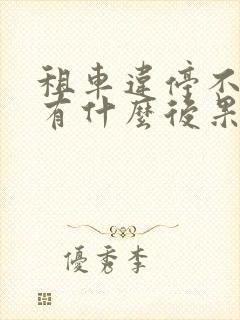 租車違停不
有什麼後果
優秀李